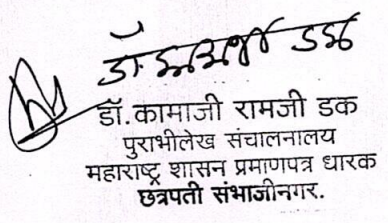 डॉ. कामाजी डक
डॉ. कामाजी रामजी डक
पुराभीलेख संचालनालय
महाराष्ट्र शासन प्रमाणपत्र धारक
छत्रपती संभाजीनगर.